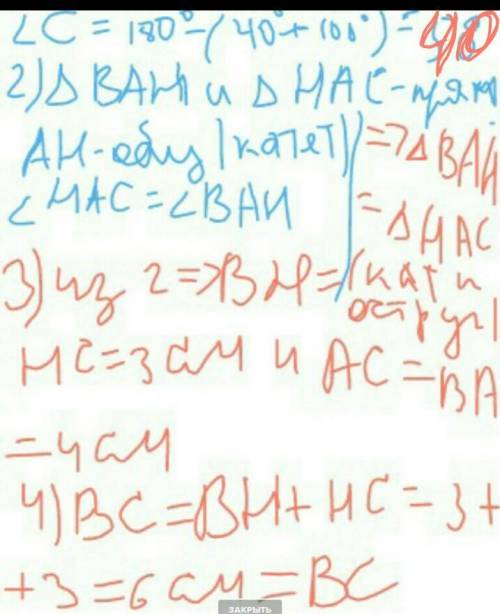 ∠C = 180° - (40° + 100°) = 40
2) Δ BAH и Δ HAC - прям
AH - общ (катет) => Δ BAH
∠HAC = ∠BAH = Δ HAC
3) из 2 => BH = (кат и
остр уг)
HC = 3 см и AC = BA
= 4 см
4) BC = BH + HC = 3 +
+ 3 = 6 см = BC
ЗАКРЫТЬ